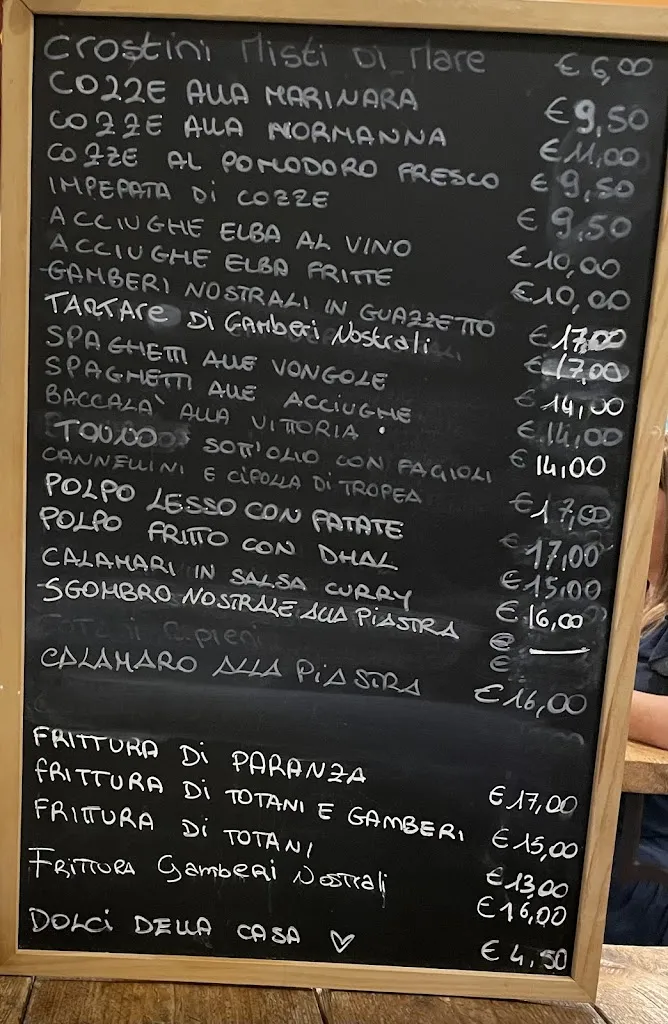 Crostini Misti Di Mare € 6,00
COZZE ALLA MARINARA € 9,50
COZZE ALLA NORMANNA € 11,00
COZZE AL POMODORO FRESCO € 9,50
IMPEPATA Di COZZE € 9,50
ACCIUGHE ELBA AL VINO € 10,00
ACCIUGHE ELBA FRITTE € 10,00
GAMBERI NOSTRALI IN GUAZZETTO € 17,00
TARTARE Di Gamberi Nostrali € 17,00
SPAGHETTI ALLE VONGOLE € 14,00
SPAGHETTI ALLE ACCIUGHE € 14,00
BACCALA' ALLA VITTORIA € 14,00
SOTT'OLIO CON FAGIOLI
CANNELLINI E CIPOLLA DI TROPEA € 17,00
POLPO LESSO CON PATATE € 17,00
POLPO FRITTO CON DHAL € 15,00
CALAMARI IN SALSA CURRY € 16,00
SGOMBRO NOSTRALE ALLA PIASTRA €
€
CALAMARO ALLA PIASTRA € 16,00
FRITTURA Di PARANZA € 17,00
FRITTURA Di TOTANI E GAMBERI € 15,00
FRITTURA Di TOTANI € 13,00
FRITTURA Gamberi Nostrali € 16,00
DOLCI DELLA CASA ♡ € 4,50